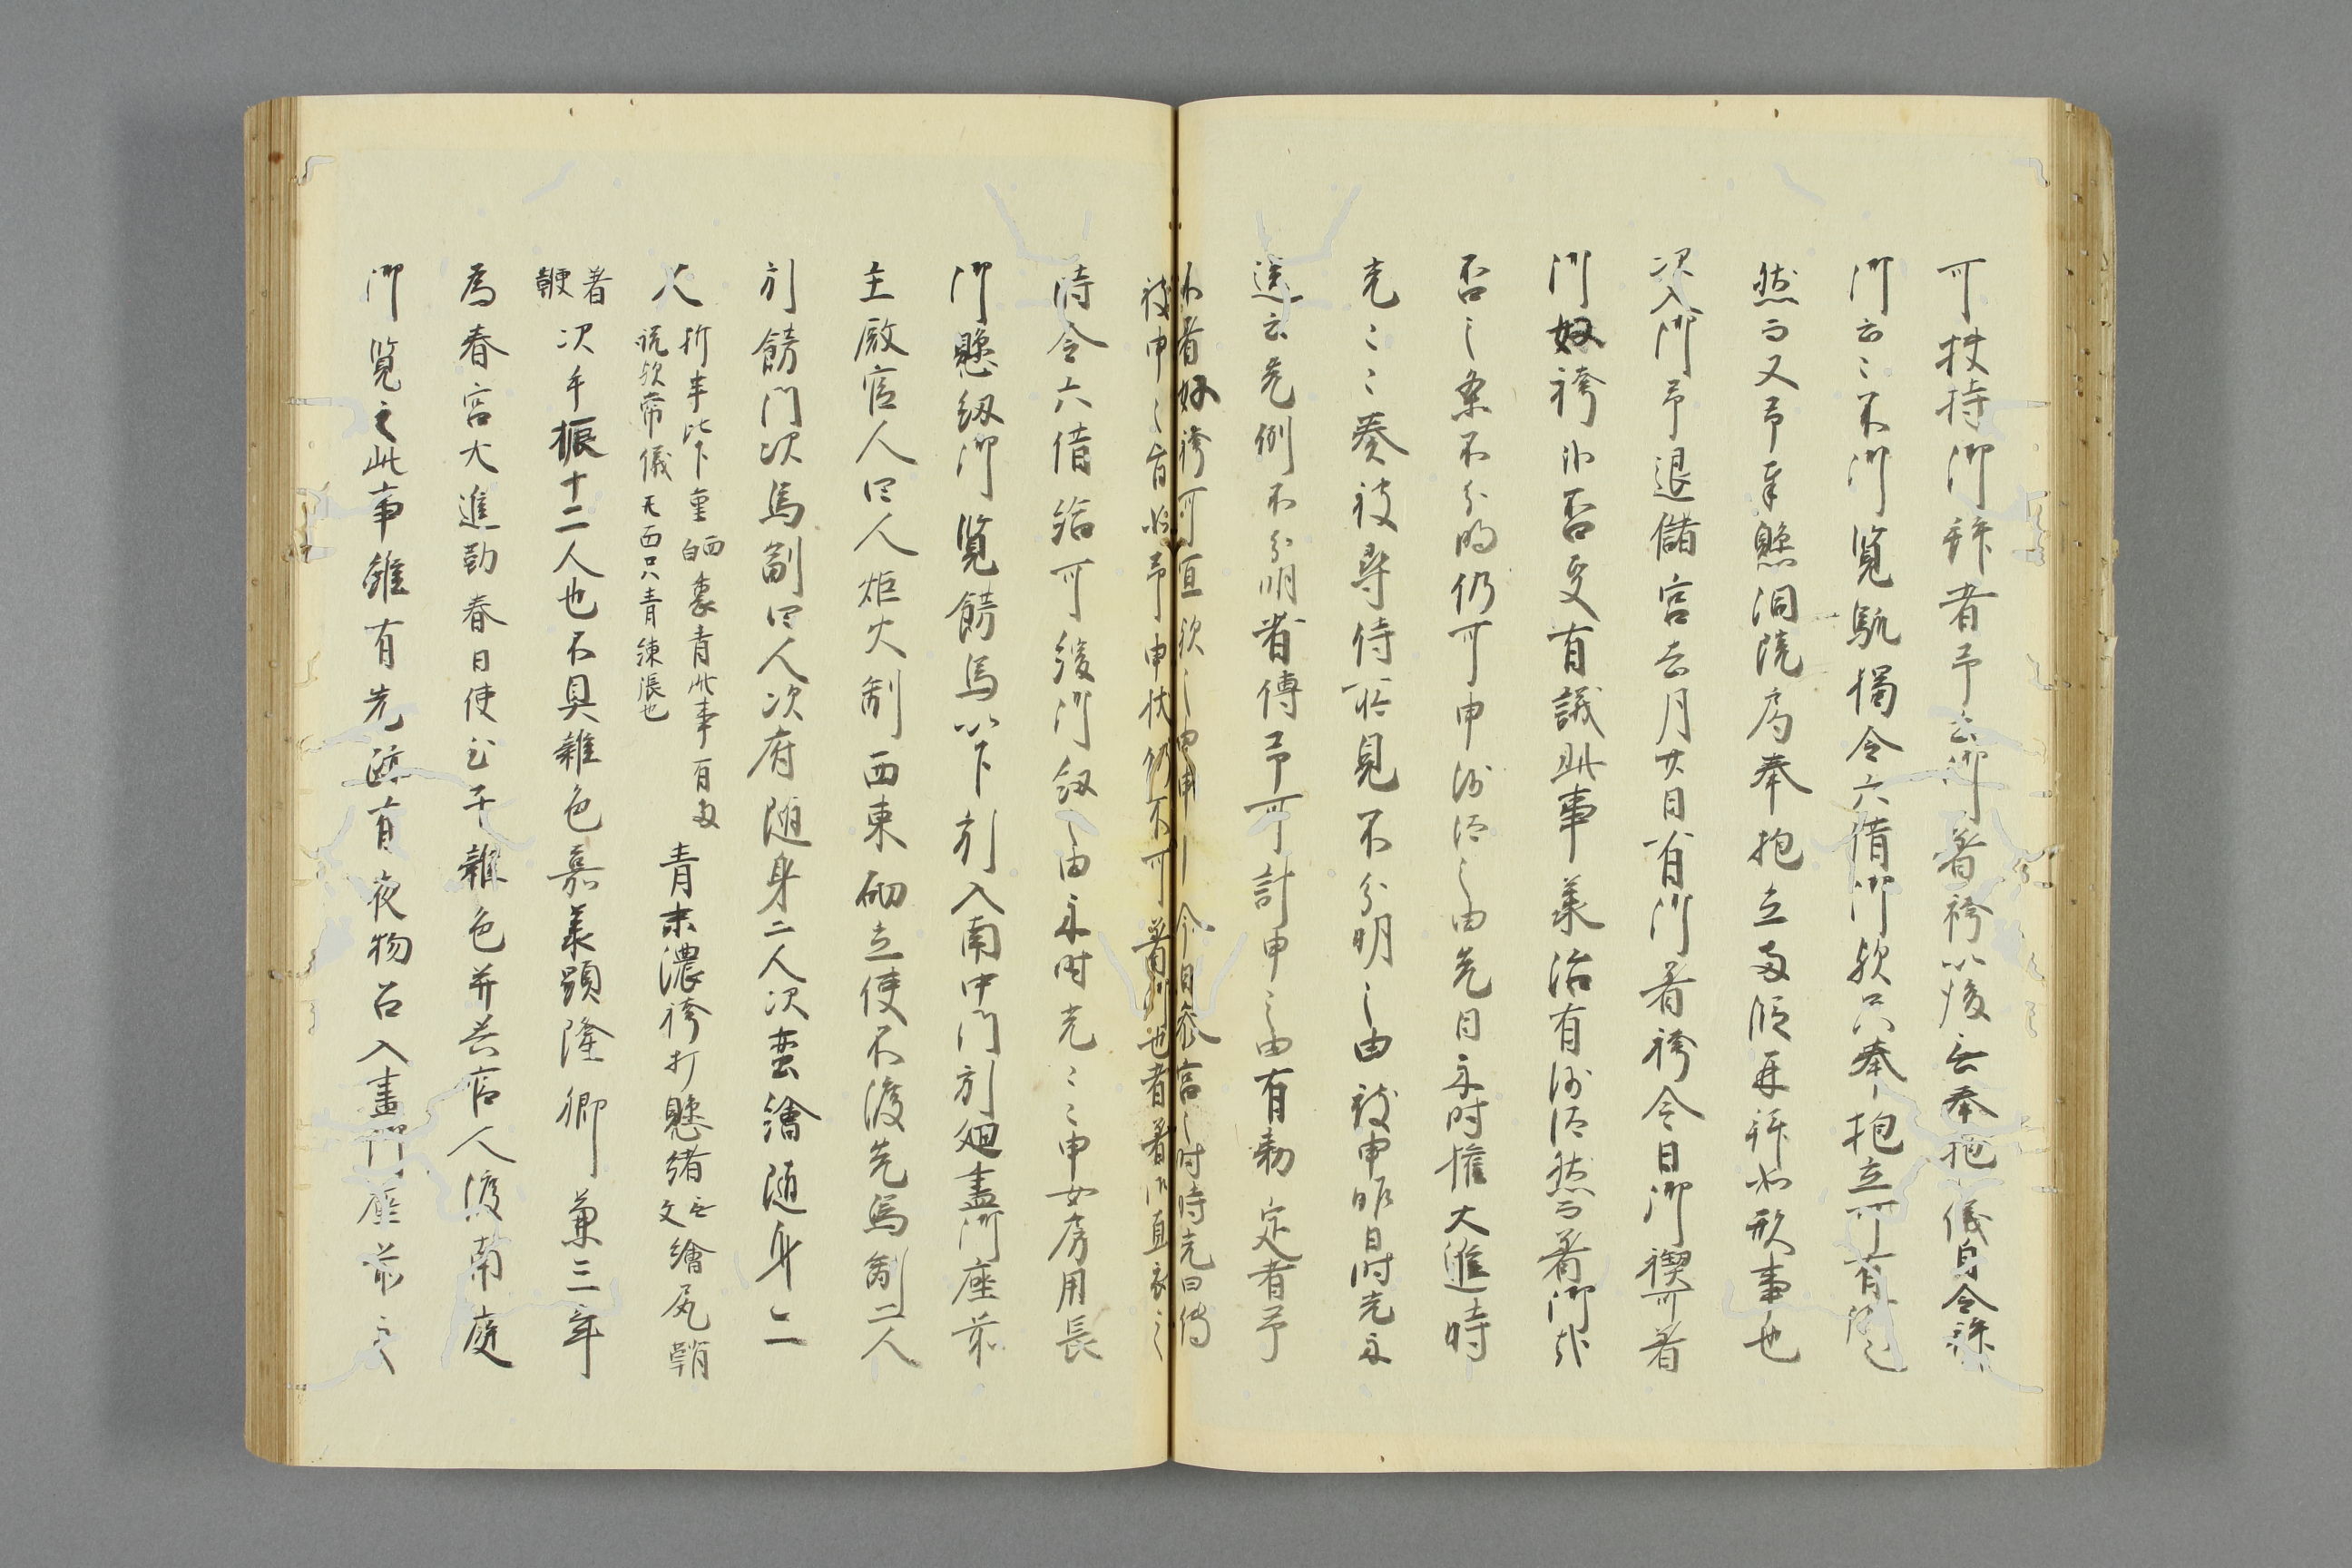 可扶持御拝者予云御著袴以後無奉抱儀自令拝
御云々不御覧軌獨令六借御歟只奉抱立可有
然而又予奉懸洞院局奉抱立両段再拝如形事也
次入御予退儲宮去月廿日有御著袴今日御禊可著
御奴袴哉否更有議此事兼治有沙汰然而著御哉
否之条不分明仍可申沙汰之由先日示時権大進時
光々々奏被尋侍所見不分明之由被申昨日時光示
送云先例不分明者傳予可計申之由有勅定者予
著奴袴可宜歟之由申 今日参宮之時時光曰傳
被申之旨如予申状仍不可著御也者著御直衣之
時令六借給可後御劔之由示時光々々申女房用長
御懸劔御覧餝馬以下引入南中門引廻晝御座前
主殿官人四人炬火副西東砌立使不渡先馬副二人
引餝門次馬副四人次府随身二人次蛮繪随身二
人 折半比下重白面裏青此事有両
説歟常儀无面只青練張也 青末濃袴打懸緒無文繪尻鞘
著鞭 次手振十二人也不具雑色嘉義顕隆卿兼三年
為春宮大進勤春日使至于雑色并無官人渡南庭
御覧之此事雖有先蹤有夜物召入晝御座前之